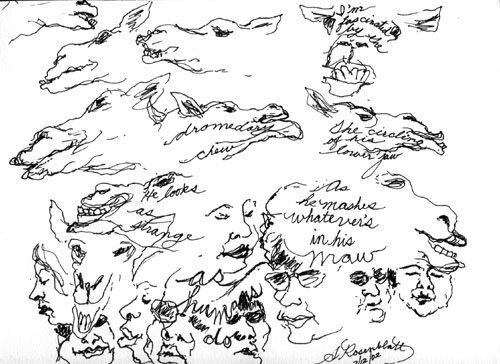 I'm
fascinated
by the
dromedary
chew
The circling
of his
lower jaw
He looks
as
strange
As
he mashes
whatever's
in his
maw
as
humans
do
S. Rosenblatt